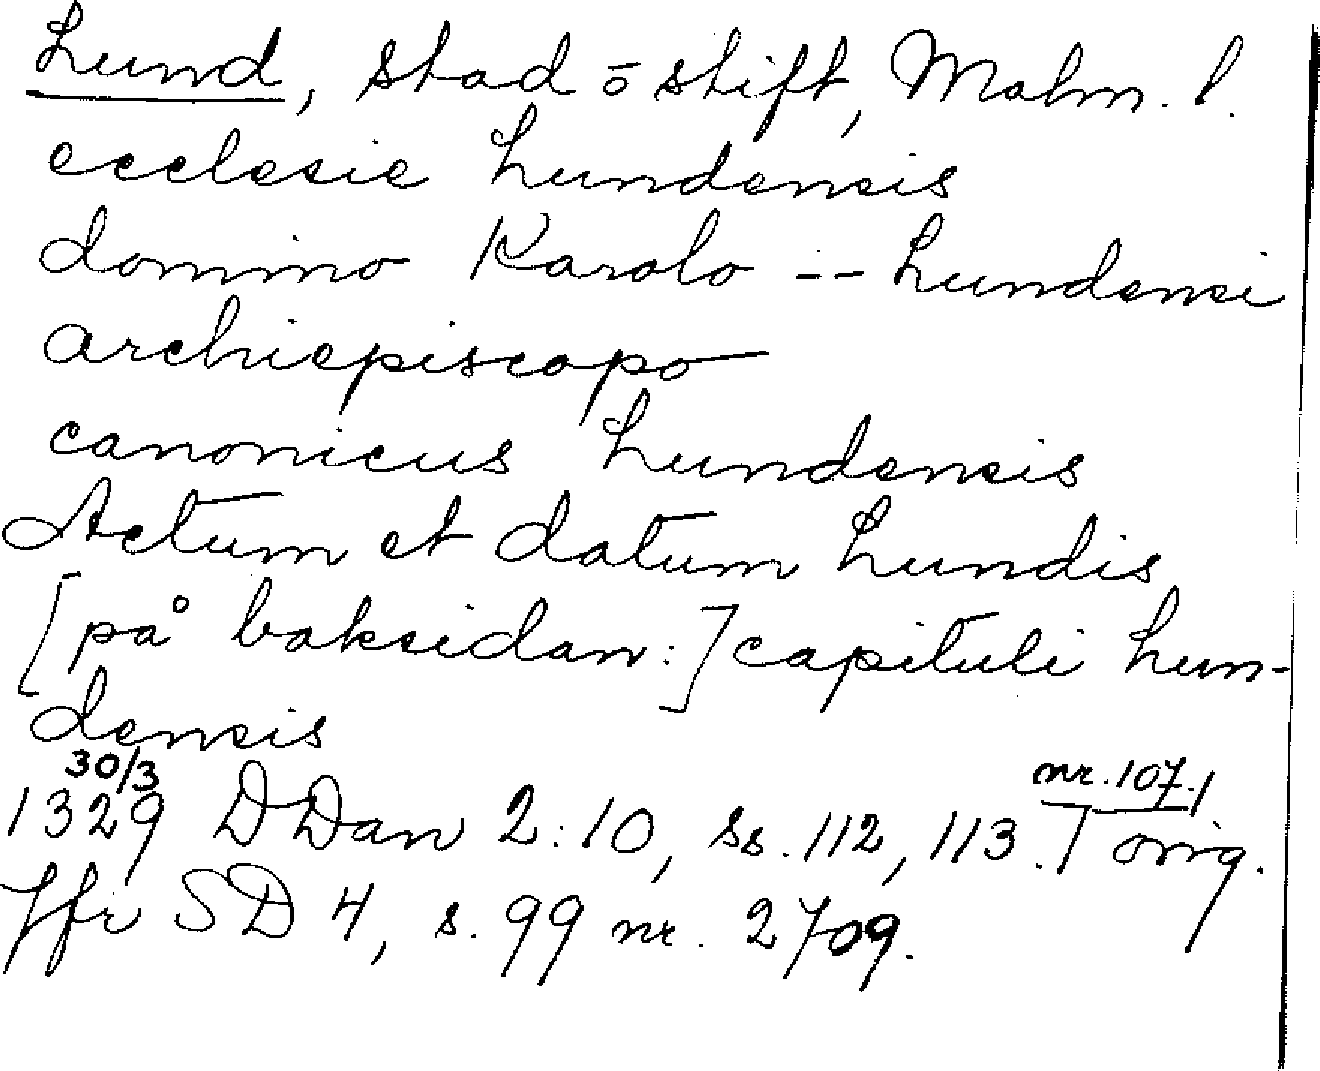 Lund, stad o stift, Malm. l.
ecclesie Lundensis
domino Karolo -- Lundensi
archiepiscopo
canonicus Lundensis
Actum et datum Lundis
[på baksidan:] capituli Lun-
densis
30/3 nr. 107.
1329 DDan 2:10, ss. 112, 113. orig.
Jfr SD 4, s. 99 nr. 2709.